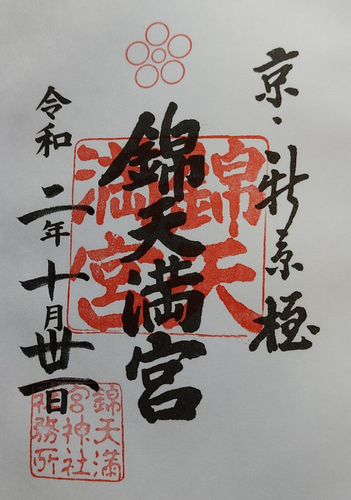 京・新京極
錦天満宮
錦天
満宮
令和二年十月廿一日
錦天満
宮神社
社務所